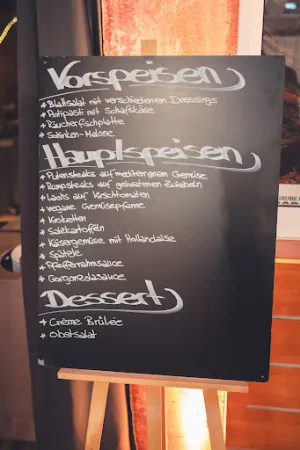 Vorspeisen
* Blattsalat mit verschiedenen Dressings
* Antipasti mit Schafskäse
* Räucherfischplatte
* Schinken-Melone
Hauptspeisen
* Putensteaks auf mediterranem Gemüse
* Rumpsteaks auf gebratenen Zwiebeln
* Lachs auf Kirschtomaten
* vegane Gemüsepfanne
* Kroketten
* Salzkartoffeln
* Käsergemüse mit Hollandaise
* Spätzle
* Pfefferrahmsauce
* Gorgonzolasauce
Dessert
* Crème Brûlée
* Obstsalat